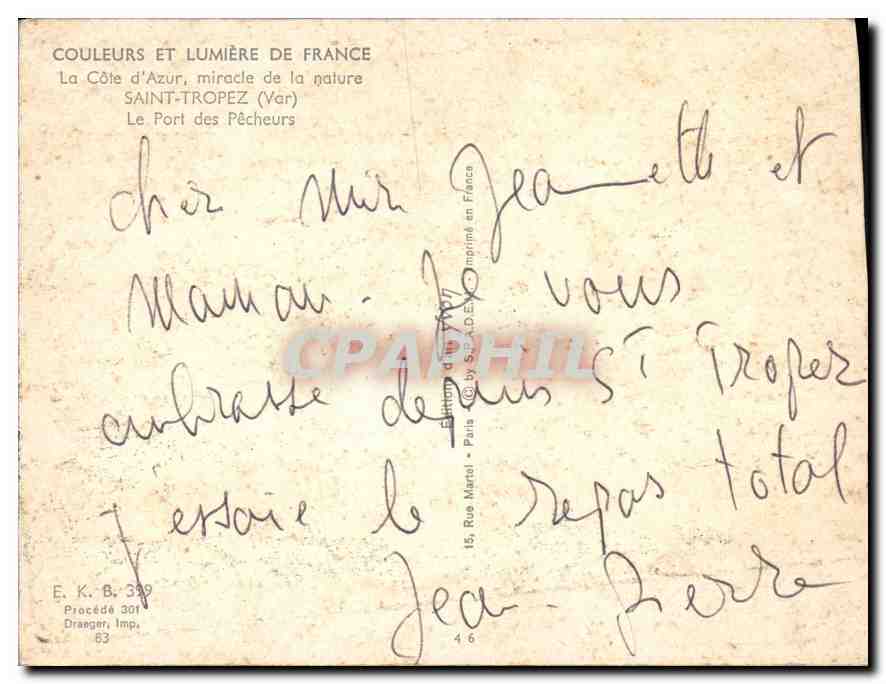 COULEURS ET LUMIÈRE DE FRANCE
La Côte d'Azur, miracle de la nature
SAINT-TROPEZ (Var)
Le Port des Pêcheurs
Cher Jeanette et
Maman - Je vous
embrasse depuis St Tropez
j'essaie le repas total
Jean-Pierre
E. K. B. 399
Procédé 301
Draeger, Imp.
83
46
Editions d'art YVON
15, Rue Martel • Paris © by S.P.A.D.E.M. Imprimé en France
CPAPHIL